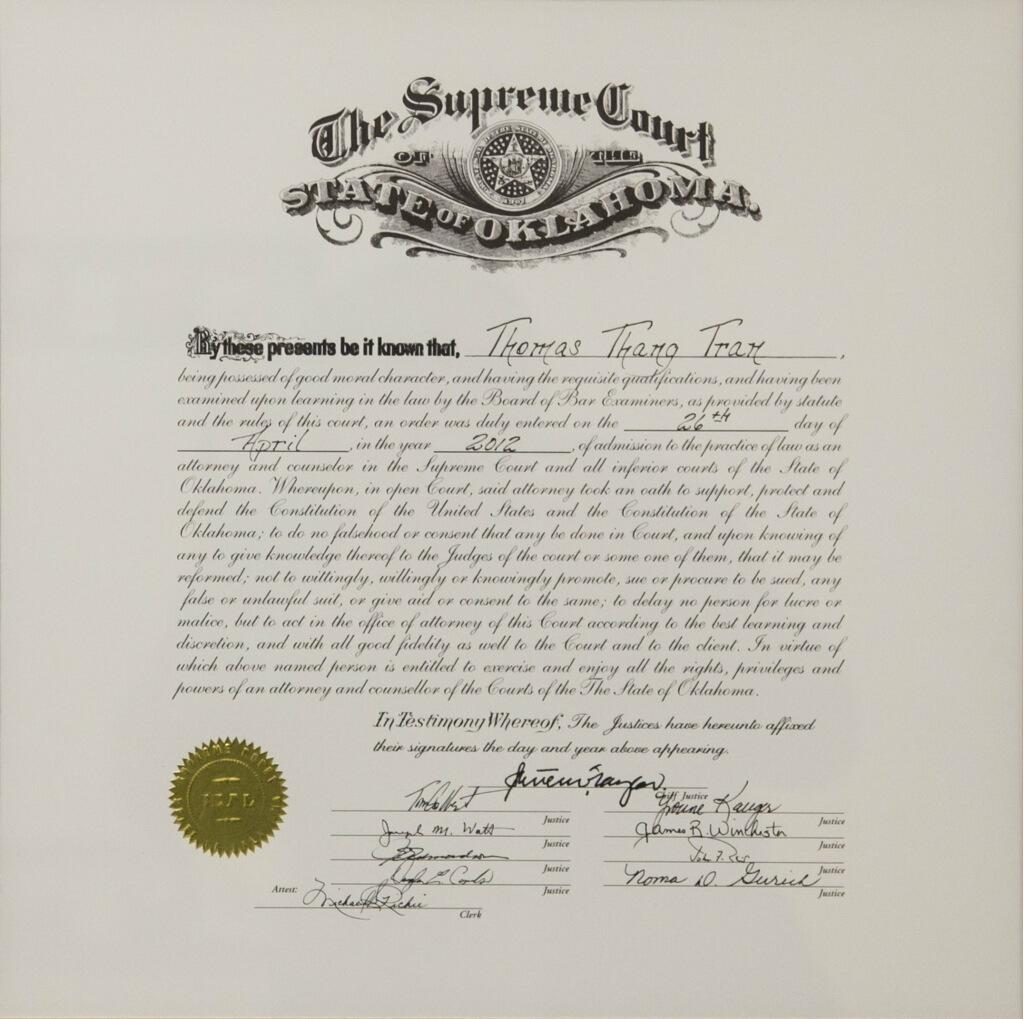 The Supreme Court
OF THE
STATE OF OKLAHOMA.
By these presents be it known that, Thomas Thang Tran,
being possessed of good moral character, and having the requisite qualifications, and having been
examined upon learning in the law by the Board of Bar Examiners, as provided by statute
and the rules of this court, an order was duly entered on the 26th day of
April, in the year 2012, of admission to the practice of law as an
attorney and counselor in the Supreme Court and all inferior courts of the State of
Oklahoma. Whereupon, in open Court, said attorney took an oath to support, protect and
defend the Constitution of the United States and the Constitution of the State of
Oklahoma; to do no falsehood or consent that any be done in Court, and upon knowing of
any to give knowledge thereof to the Judges of the court or some one of them, that it may be
reformed; not to wittingly, willingly or knowingly promote, sue or procure to be sued, any
false or unlawful suit, or give aid or consent to the same; to delay no person for lucre or
malice, but to act in the office of attorney of this Court according to the best learning and
discretion, and with all good fidelity as well to the Court and to the client. In virtue of
which above named person is entitled to exercise and enjoy all the rights, privileges and
powers of an attorney and counsellor of the Courts of the The State of Oklahoma.
In Testimony Whereof, The Justices have hereunto affixed
their signatures the day and year above appearing.
Chief Justice
Justice
Yvonne Kauger
Justice
Joseph M. Watt
Justice
James R. Winchester
Justice
Justice
John F. Reif
Justice
Justice
Noma D. Gurich
Justice
Attest: Michael Richie
Clerk
SEAL